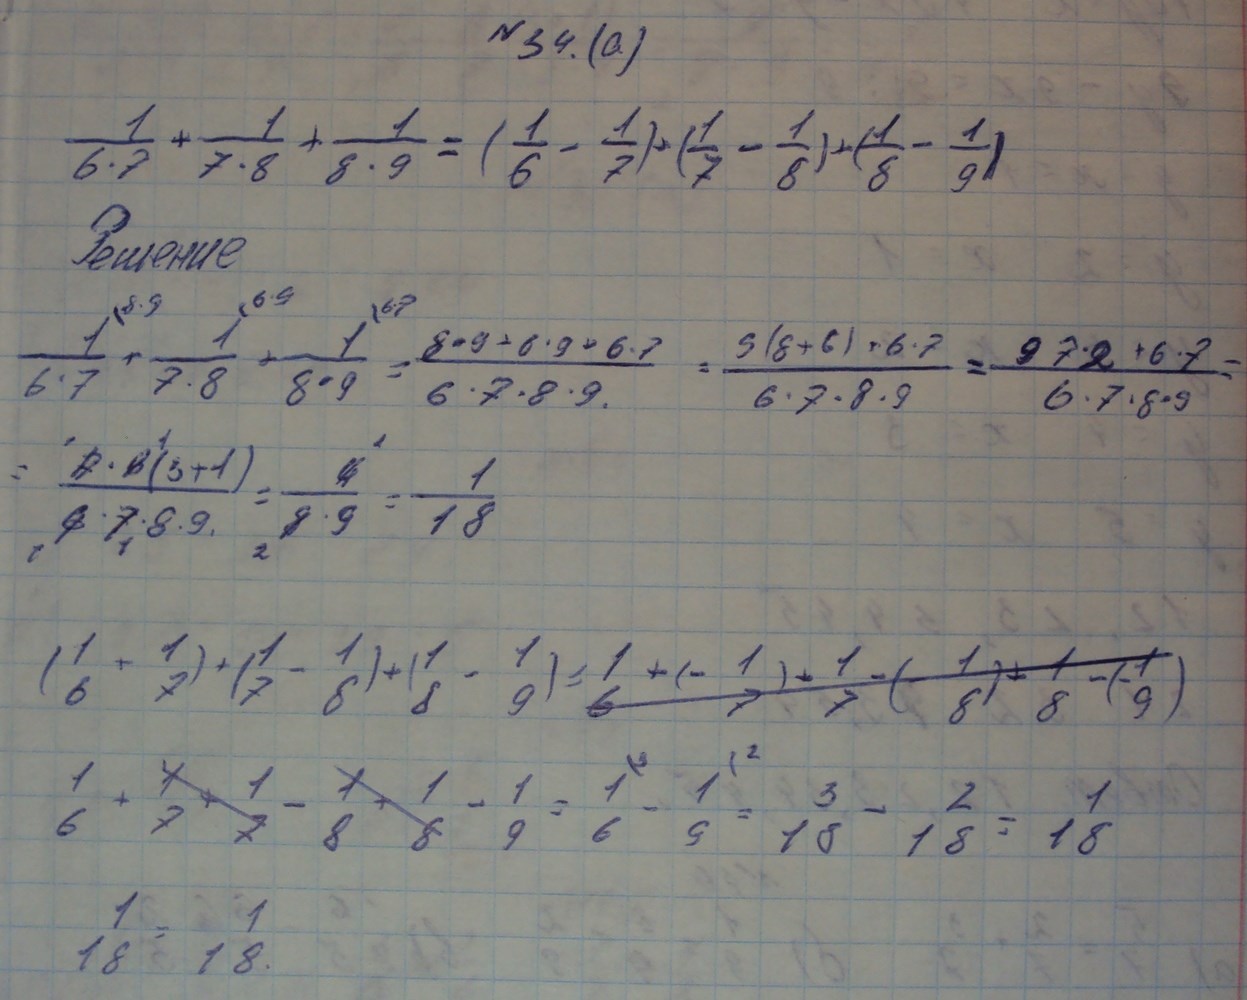 №34.(а)
1/(6·7) + 1/(7·8) + 1/(8·9) = (1/6 - 1/7)+(1/7 - 1/8)+(1/8 - 1/9)
Решение
1/(6·7) \8·9 + 1/(7·8) \6·9 + 1/(8·9) \6·7 = (8·9+6·9+6·7)/(6·7·8·9.) = (9(8+6)+6·7)/(6·7·8·9) = (9 7·2 +6·7)/(6·7·8·9) =
= (7·6(3+1))/(6·7·8·9.) = 4/(8·9) = 1/18
(1/6 + 1/7)+(1/7 - 1/8)+(1/8 - 1/9) = 1/6 +(- 1/7)+ 1/7 -(- 1/8)+ 1/8 -(-1/9)
1/6 + 1/7 + 1/7 - 1/8 + 1/8 - 1/9 = 1/6 \3 - 1/9 \2 = 3/18 - 2/18 = 1/18
1/18 = 1/18.